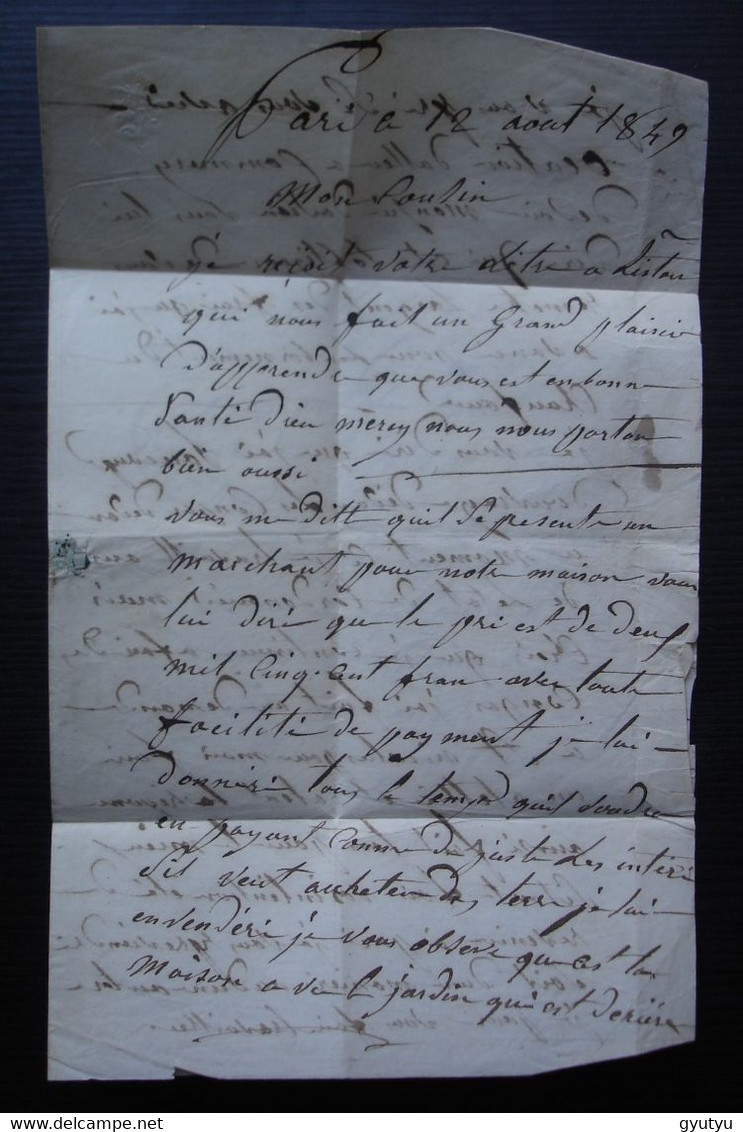 Paris 12 aout 1849
Mon Cousin
je reçoit votre l'etre a l'istan
qui nous fait un Grand plaisir
d'apprendre que vous est en bonne
santé dieu mercy nous nous porton
bien aussi
vous me ditt quil se presente un
marchant pour notre maison vous
lui diré que le pri est de deux
mil cinq cent fran avec toute
facilité de payment je lui
donneré tous le temps quil voudra
en payant comme de juste les intéré
sil veut acheter des terre je lui
en vendéré je vous observe que cest la
maison avec le jardin qui est deriére
gyutyu